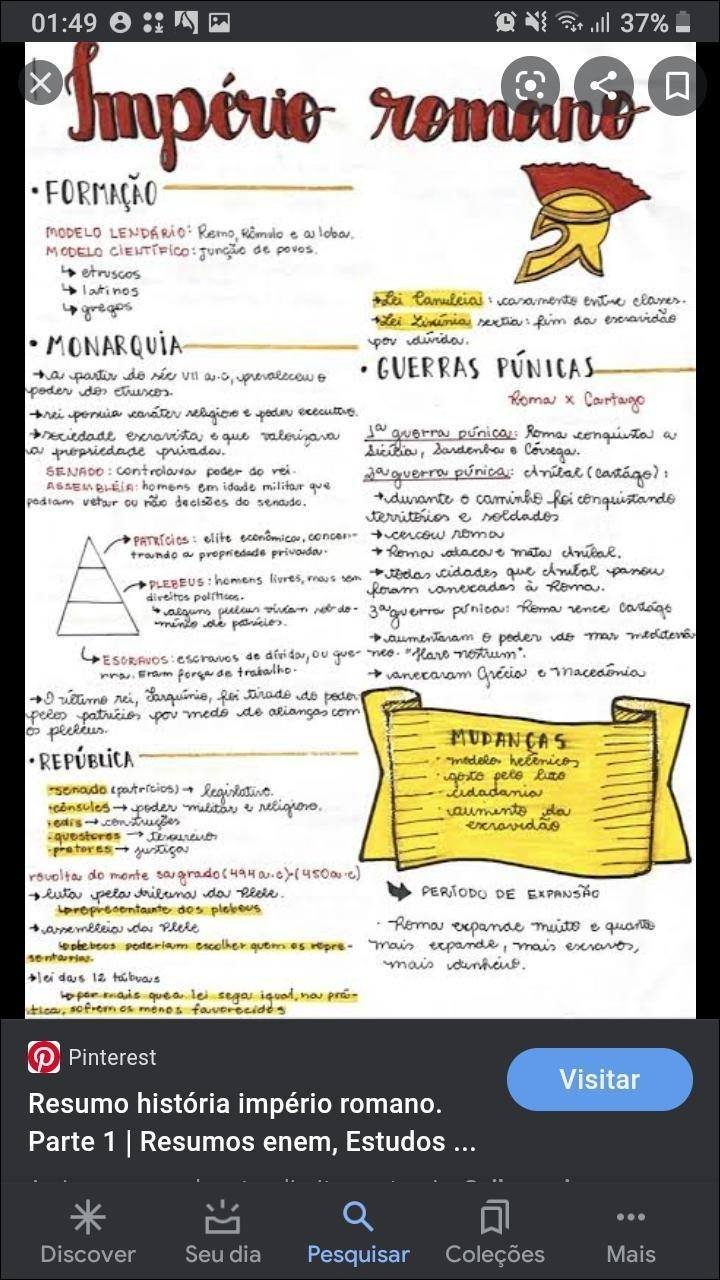 01:49
37%
Império romano
• FORMAÇÃO
MODELO LENDÁRIO: Remo, Rômulo e a loba.
MODELO CIENTÍFICO: junção de povos.
↳ etruscos
↳ latinos
↳ gregos
• MONARQUIA
→ a partir do séc VII a.c, prevaleceu o
poder dos etruscos.
→ rei possuia caráter religioso e poder executivo.
→ sociedade escravista e que valorizava
a propriedade privada.
SENADO: controlava poder do rei.
ASSEMBLÉIA: homens em idade militar que
podiam vetar ou não decisões do senado.
→ PATRÍCIOS: elite econômica, concen-
trando a propriedade privada.
→ PLEBEUS: homens livres, mas sem
direitos políticos.
↳ alguns plebeus viviam sob do-
mínio de patrícios.
↳ ESCRAVOS: escravos de dívida, ou gue-
rra. Eram força de trabalho.
→ O último rei, Tarquínio, foi tirado do poder
pelos patrícios por medo de alianças com
os plebeus.
• REPÚBLICA
• senado (patrícios) → legislativo.
• cônsules → poder militar e religioso.
• edis → construções
• questores → tesoureiro
• pretores → justiça
revolta do monte sagrado (494 a.c)-(450 a.c)
→ luta pela tribuna da Plebe.
↳ representante dos plebeus
→ assembleia da Plebe
↳ plebeus poderiam escolher quem os repre-
sentaria.
→ lei das 12 tábuas
↳ por mais que a lei seja igual, na prá-
tica, sofrem os menos favorecidos
→ Lei Canuleia: casamento entre classes.
→ Lei Licínia sextia: fim da escravidão
por dívida.
• GUERRAS PÚNICAS
Roma x Cartago
1ª guerra púnica: Roma conquista a
Sicília, Sardenha e Córsega.
2ª guerra púnica: Aníbal (Cartágo):
→ durante o caminho foi conquistando
territórios e soldados
→ cercou roma
→ Roma ataca e mata Aníbal.
→ todas cidades que Aníbal passou
foram anexadas à Roma.
3ª guerra púnica: Roma vence Cartágo
→ aumentaram o poder do mar mediterrâ-
neo. "Mare nostrum".
→ anexaram Grécia e Macedônia
MUDANÇAS
• modelos helênicos
• gosto pelo luxo
• cidadania
• aumento da
escravidão
PERÍODO DE EXPANSÃO
• Roma expande muito e quanto
mais expande, mais escravos,
mais dinheiro.
Pinterest
Visitar
Resumo história império romano.
Parte 1 | Resumos enem, Estudos ...
Discover
Seu dia
Pesquisar
Coleções
Mais